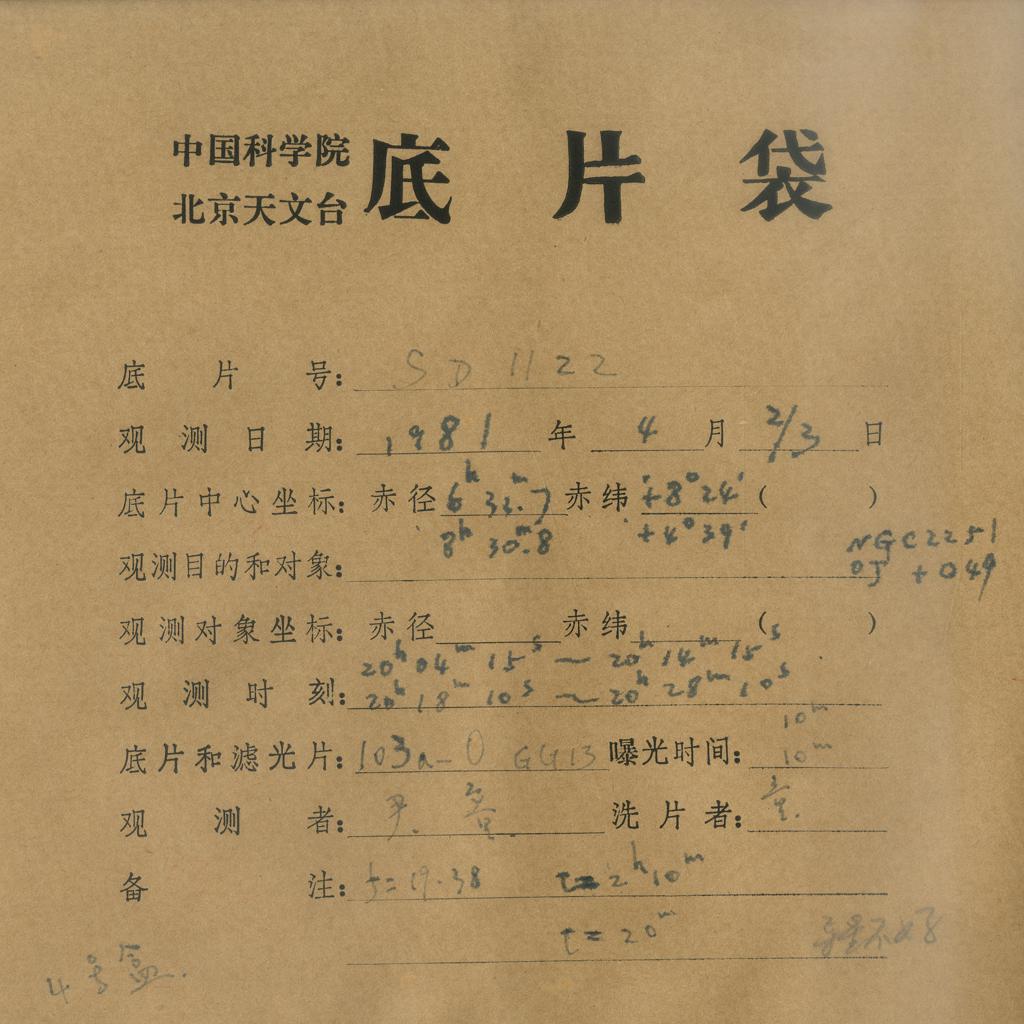 中国科学院
北京天文台
底片袋
底片号: SD 1122
观测日期: 1981 年 4 月 2/3 日
底片中心坐标: 赤径 6h 33m.7 赤纬 +8° 24' ( )
8h 30m.8 +4° 39'
NGC2251
观测目的和对象: OJ +049
观测对象坐标: 赤径 赤纬 ( )
20h 04m 15s ~ 20h 14m 15s
观测时刻: 20h 18m 10s ~ 20h 28m 10s
10m
底片和滤光片: 103a-O GG13 曝光时间: 10m
观测者: 洗片者:
备注: f=19.38 t=2h 10m
t=20m
导星不好
4号盒.